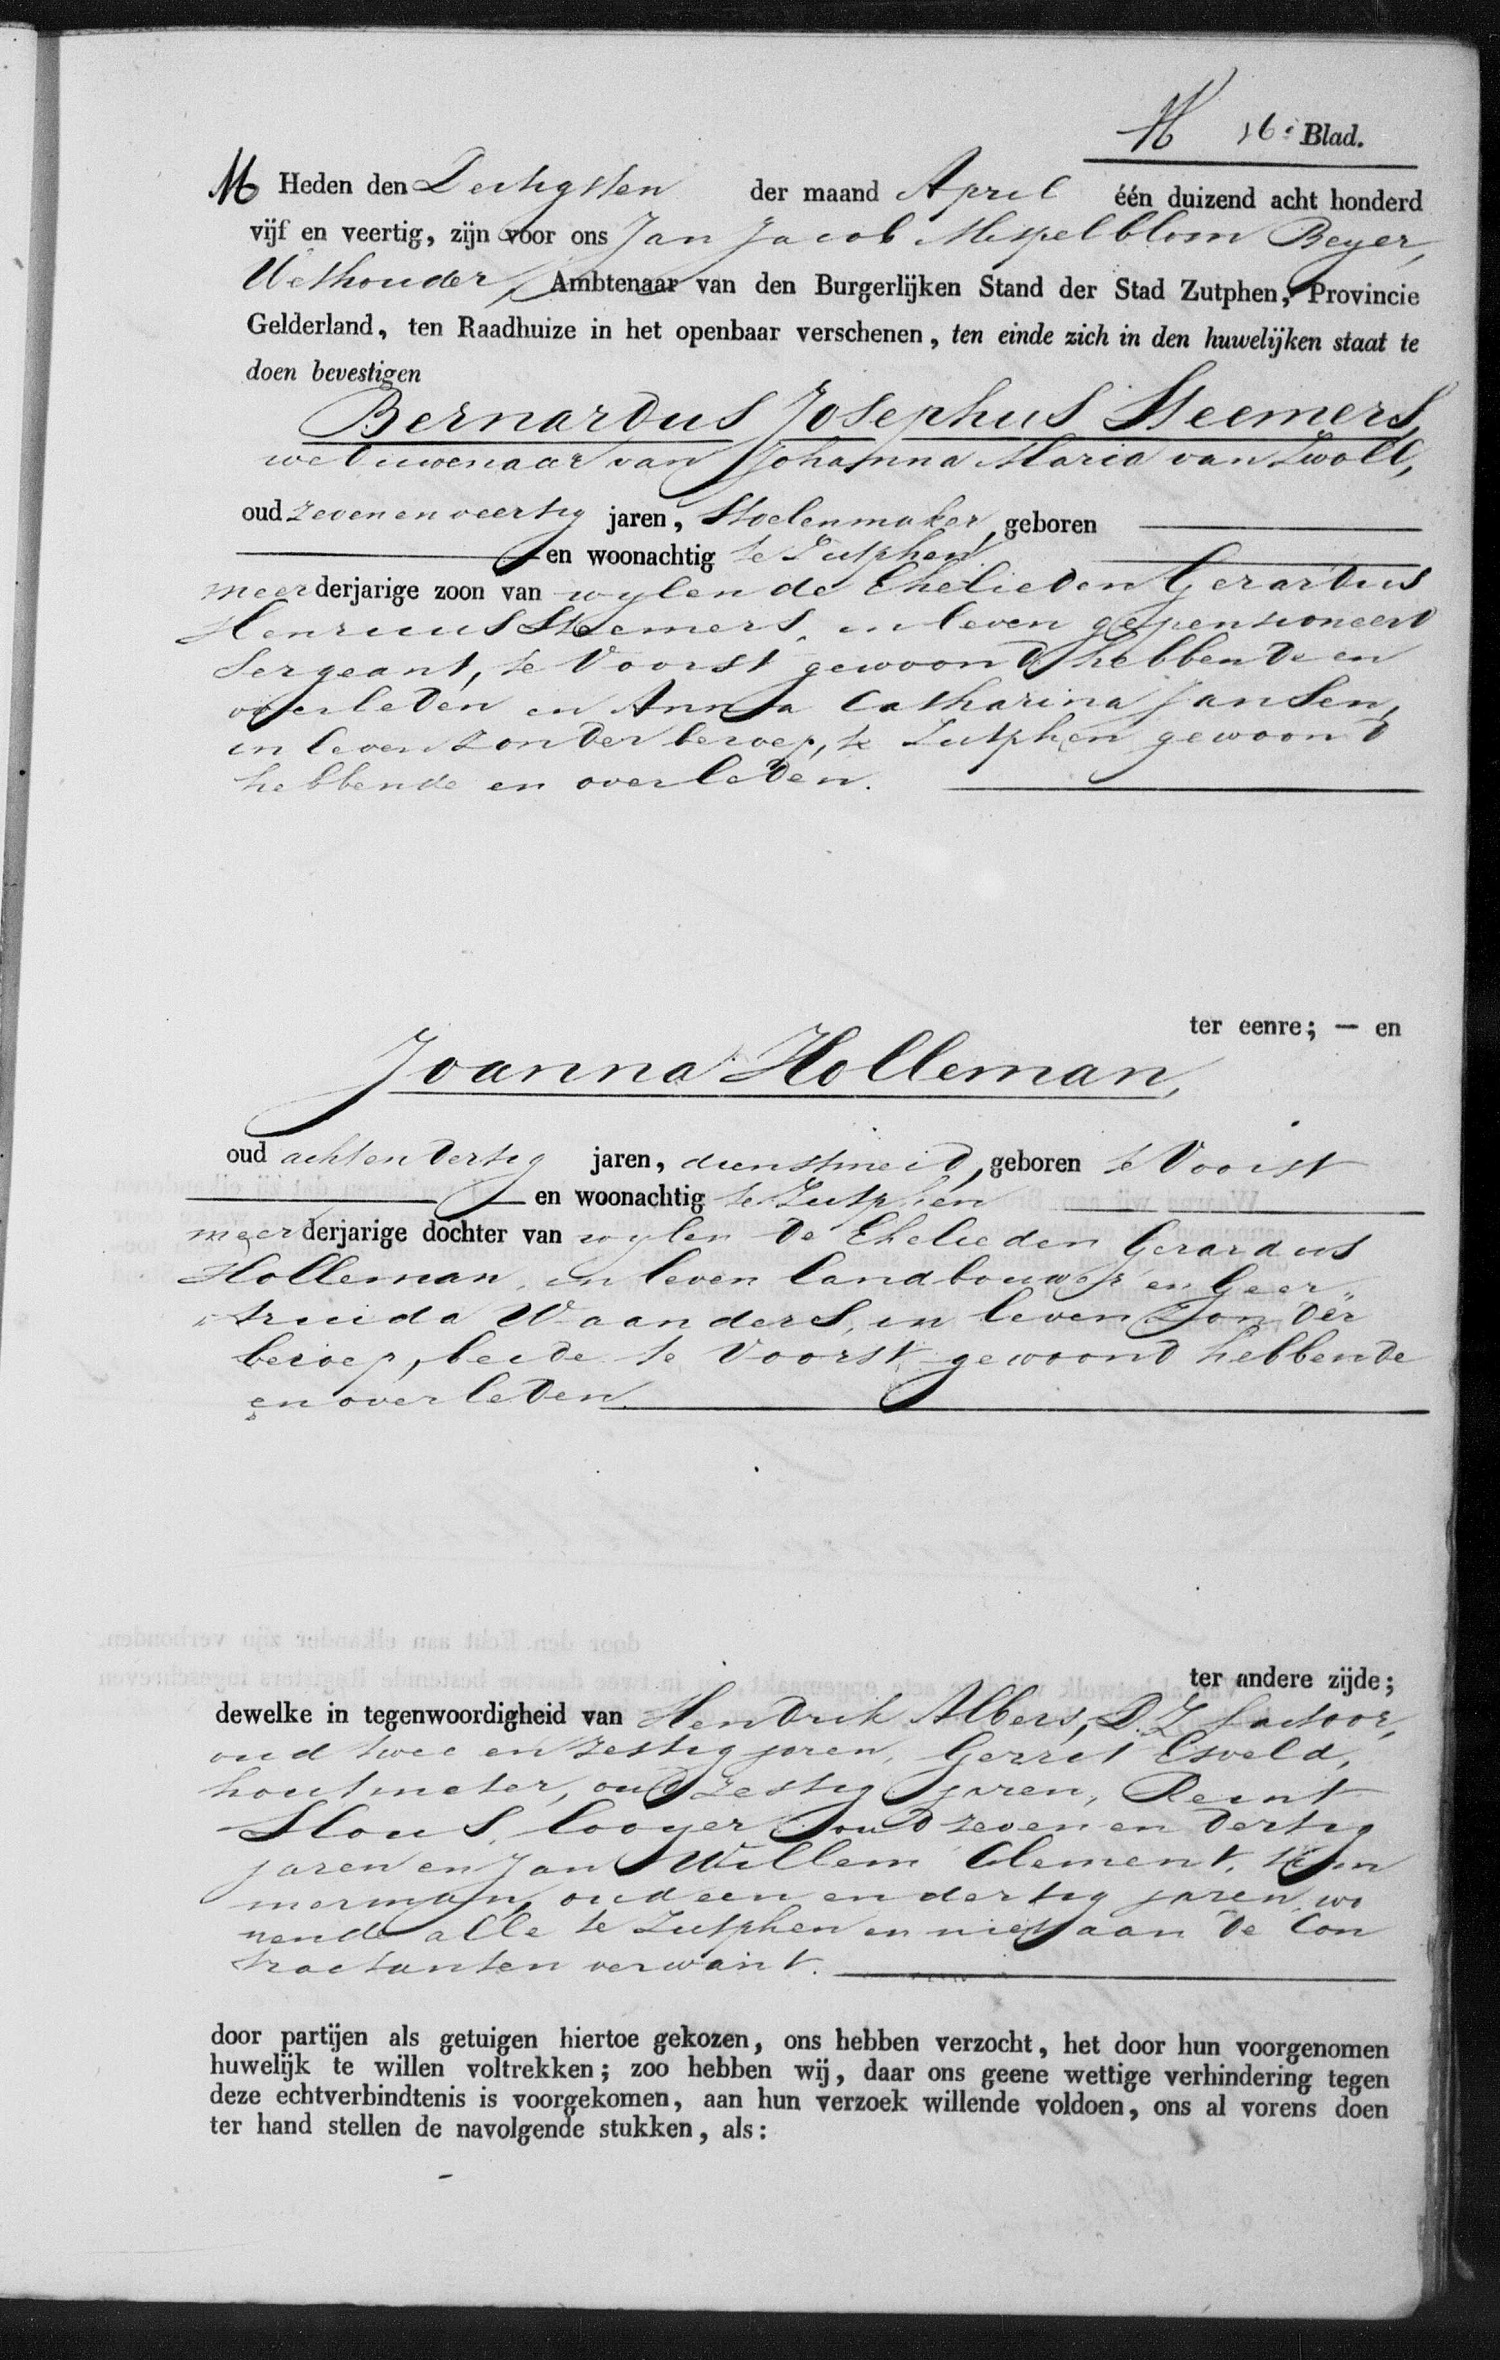 16e Blad.
Heden den Dertigsten der maand April één duizend acht honderd
vijf en veertig, zijn voor ons Jan Jacob Mispelblom Beyer,
Wethouder, Ambtenaar van den Burgerlijken Stand der Stad Zutphen, Provincie
Gelderland, ten Raadhuize in het openbaar verschenen, ten einde zich in den huwelijken staat te
doen bevestigen
Bernardus Josephus Steemers,
weduwenaar van Johanna Maria van Zwoll,
oud zeven en veertig jaren, Stoelenmaker, geboren
en woonachtig te Zutphen
meerderjarige zoon van wylen de Ehelieden Gerardus
Henricus Steemers, in leven gepensioneerd
Sergeant, te Voorst gewoond hebbende en
overleden en Anna Catharina Jansen,
in leven zonder beroep, te Zutphen gewoond
hebbende en overleden.
ter eenre; — en
Joanna Holleman,
oud achtendertig jaren, dienstmeid, geboren te Voorst
en woonachtig te Zutphen
meerderjarige dochter van wylen de Ehelieden Gerardus
Holleman, in leven landbouwer en Geer„
truida Waanders, in leven zonder
beroep, beide te Voorst gewoond hebbende
en overleden.
ter andere zijde;
dewelke in tegenwoordigheid van Hendrik Albers, D.Z. factoor,
oud twee en zestig jaren, Gerrit Esveld,
houtmeter, oud zestig jaren, Reint
Slous, looyer, oud zeven en dertig
jaren en Jan Willem Clement, tim
merman, oud een en dertig jaren, wo
nende alle te Zutphen en niet aan de Con
tractanten verwant.
door partijen als getuigen hiertoe gekozen, ons hebben verzocht, het door hun voorgenomen
huwelijk te willen voltrekken; zoo hebben wij, daar ons geene wettige verhindering tegen
deze echtverbindtenis is voorgekomen, aan hun verzoek willende voldoen, ons al vorens doen
ter hand stellen de navolgende stukken, als: